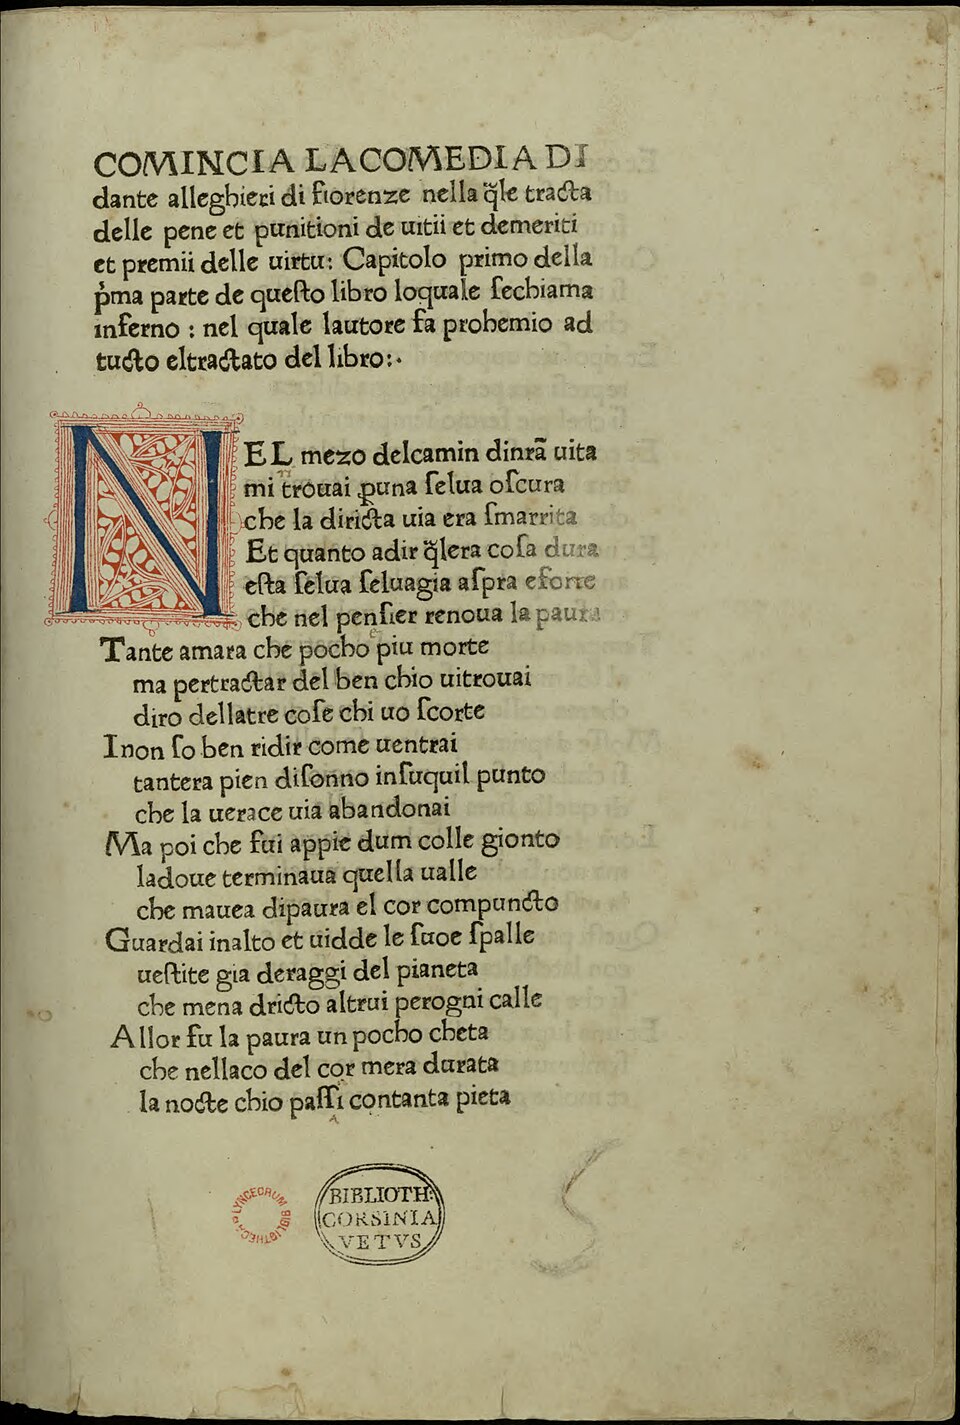 COMINCIA LACOMEDIA DI
dante alleghieri di fiorenze nella q̃le tracta
delle pene et punitioni de uitii et demeriti
et premii delle uirtu: Capitolo primo della
p̃ma parte de queſto libro loquale ſechiama
inferno : nel quale lautore fa prohemio ad
tucto eltractato del libro:·
NEL mezo delcamin dinr̃a uita
mi trouai ꝑuna ſelua oſcura
che la diricta uia era ſmarrita
Et quanto adir q̃lera coſa dura
eſta ſelua ſeluagia aſpra eforte
che nel penſier renoua la paura
Tante amara che pocho piu morte
ma pertractar del ben chio uitrouai
diro dellatre coſe chi uo ſcorte
Inon ſo ben ridir come uentrai
tantera pien diſonno inſuquil punto
che la uerace uia abandonai
Ma poi che fui appie dum colle gionto
ladoue terminaua quella ualle
che mauea dipaura el cor compuncto
Guardai inalto et uidde le ſuoe ſpalle
ueſtite gia deraggi del pianeta
che mena dricto altrui perogni calle
Allor fu la paura un pocho cheta
che nellaco del cor mera durata
la nocte chio paſſi contanta pieta
LYNCEORUM BIBLIOTHECA
BIBLIOTH:
CORSINIA
VETVS